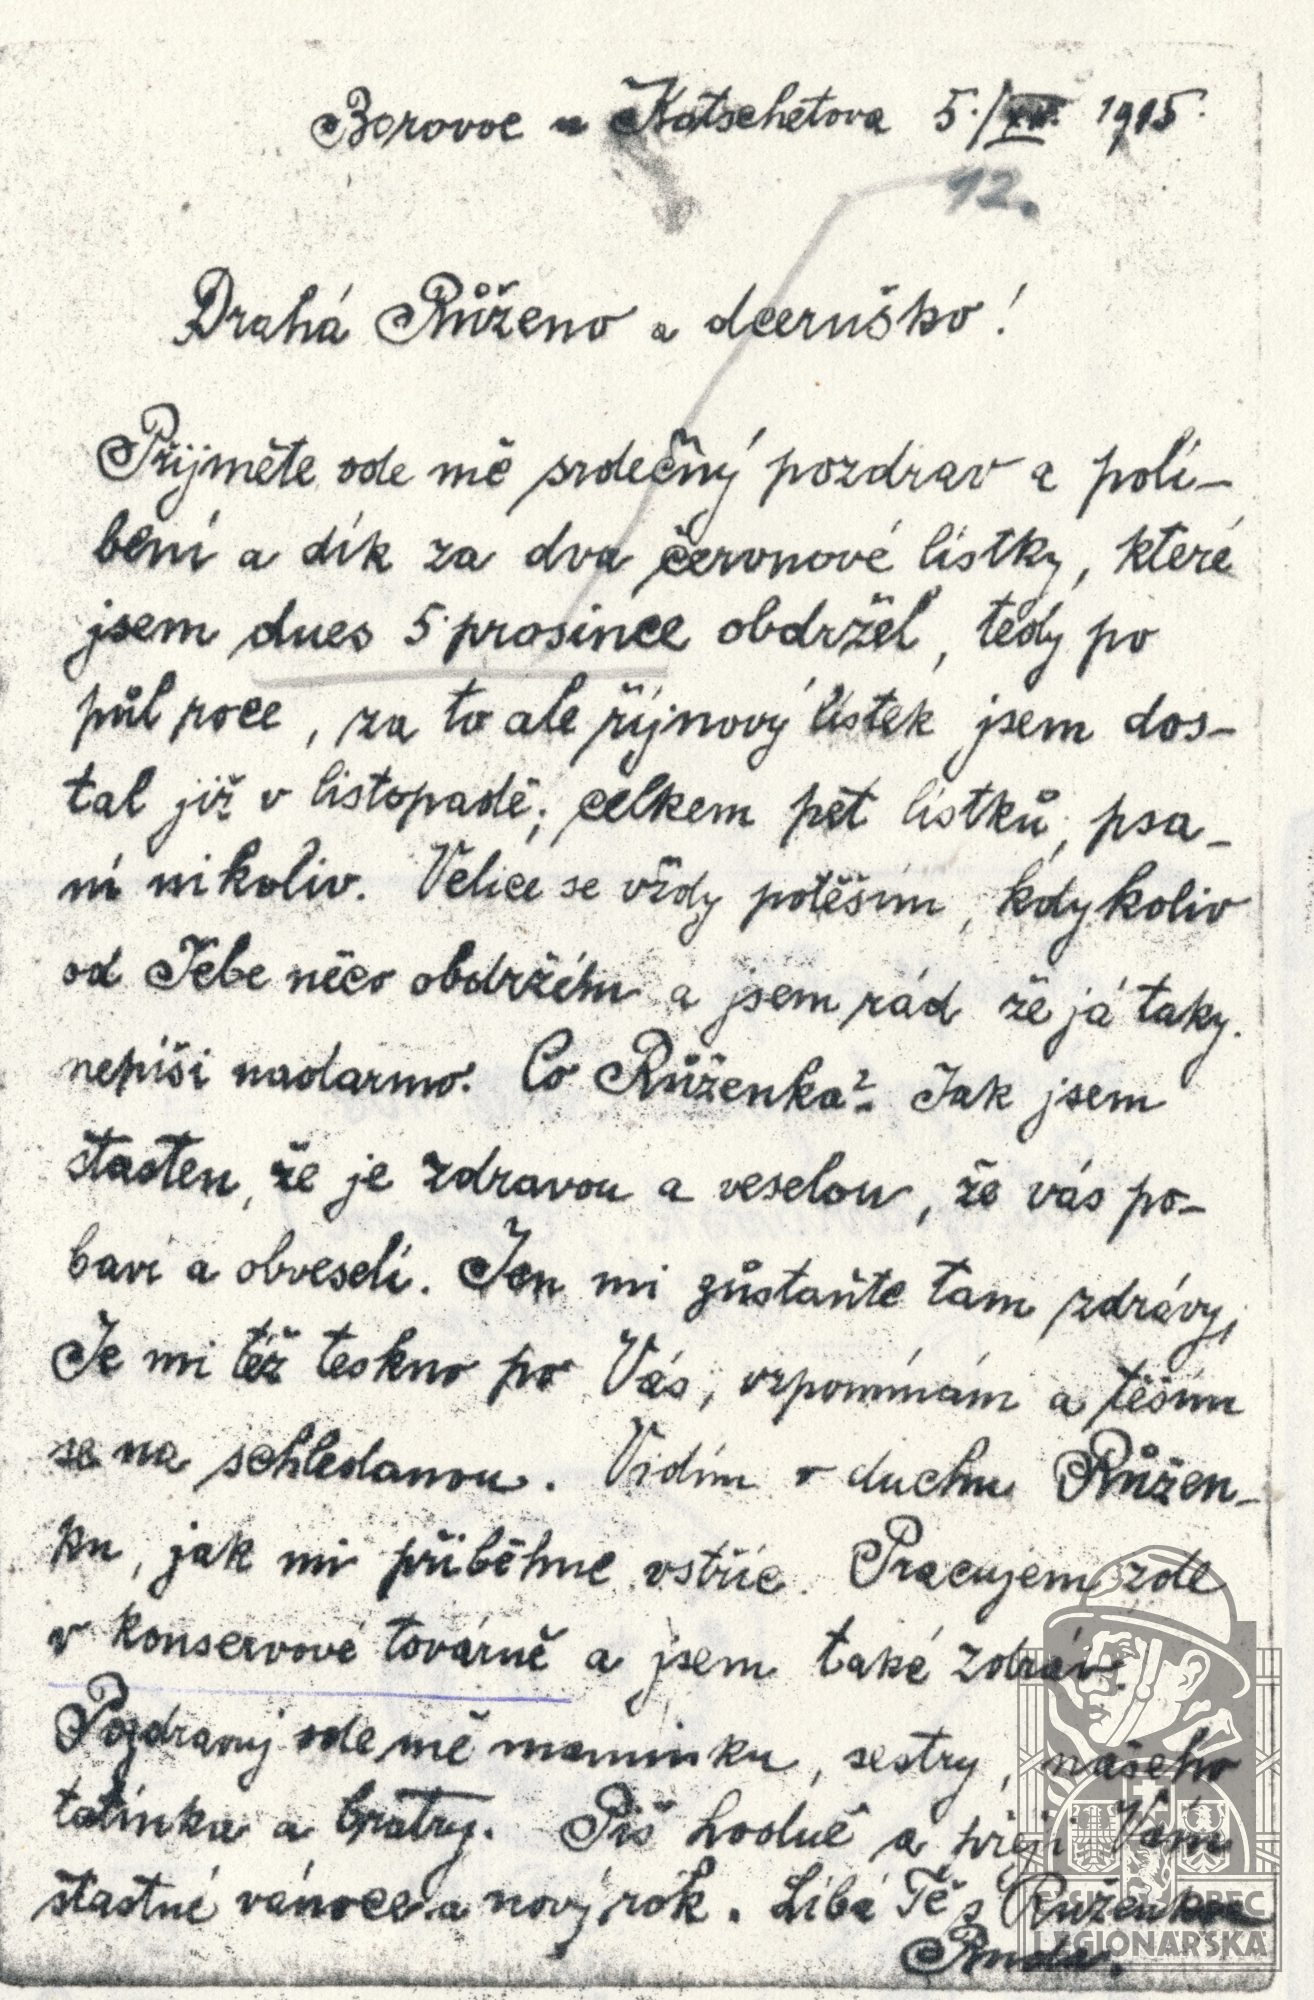 Borovoe u Katschetova 5./XII. 1915.
12.
Drahá Růženo a dceruško!
Přijměte ode mě srdečný pozdrav a polí-
bení a dík za dva červnové lístky, které
jsem dnes 5. prosince obdržel, tedy po
půl roce, za to ale říjnový lístek jsem dos-
tal již v listopadě; celkem pět lístků, psa-
ní nikoliv. Velice se vždy potěším, kdykoliv
od Tebe něco obdržím a jsem rád že já taky
nepíši nadarmo. Co Růženka? Jak jsem
šťasten, že je zdravou a veselou, že vás po-
baví a obveselí. Jen mi zůstaňte tam zdrávy,
Je mi též teskno po Vás, vzpomínám a těším
se na schledanou. Vidím v duchu Růžen-
ku, jak mi přiběhne vstříc. Pracujem zde
v konservové továrně a jsem také zdráv.
Pozdravuj ode mě maminku, sestry, našeho
tatínka a bratry. Piš hodně a přeji Vám
šťastné vánoce a nový rok. Líbá Tě s Růženkou
Ruda.
ČESKÁ OBEC
LEGIONÁŘSKÁ